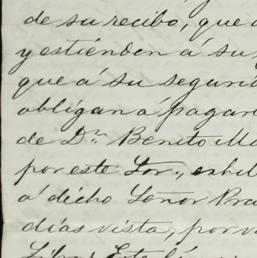 de su recibo, que
y estienden á su
que á su segund
obligan á pagar
de Dn. Benito M
por este Sor.,
á dicho Señor Pra
dias vista, por